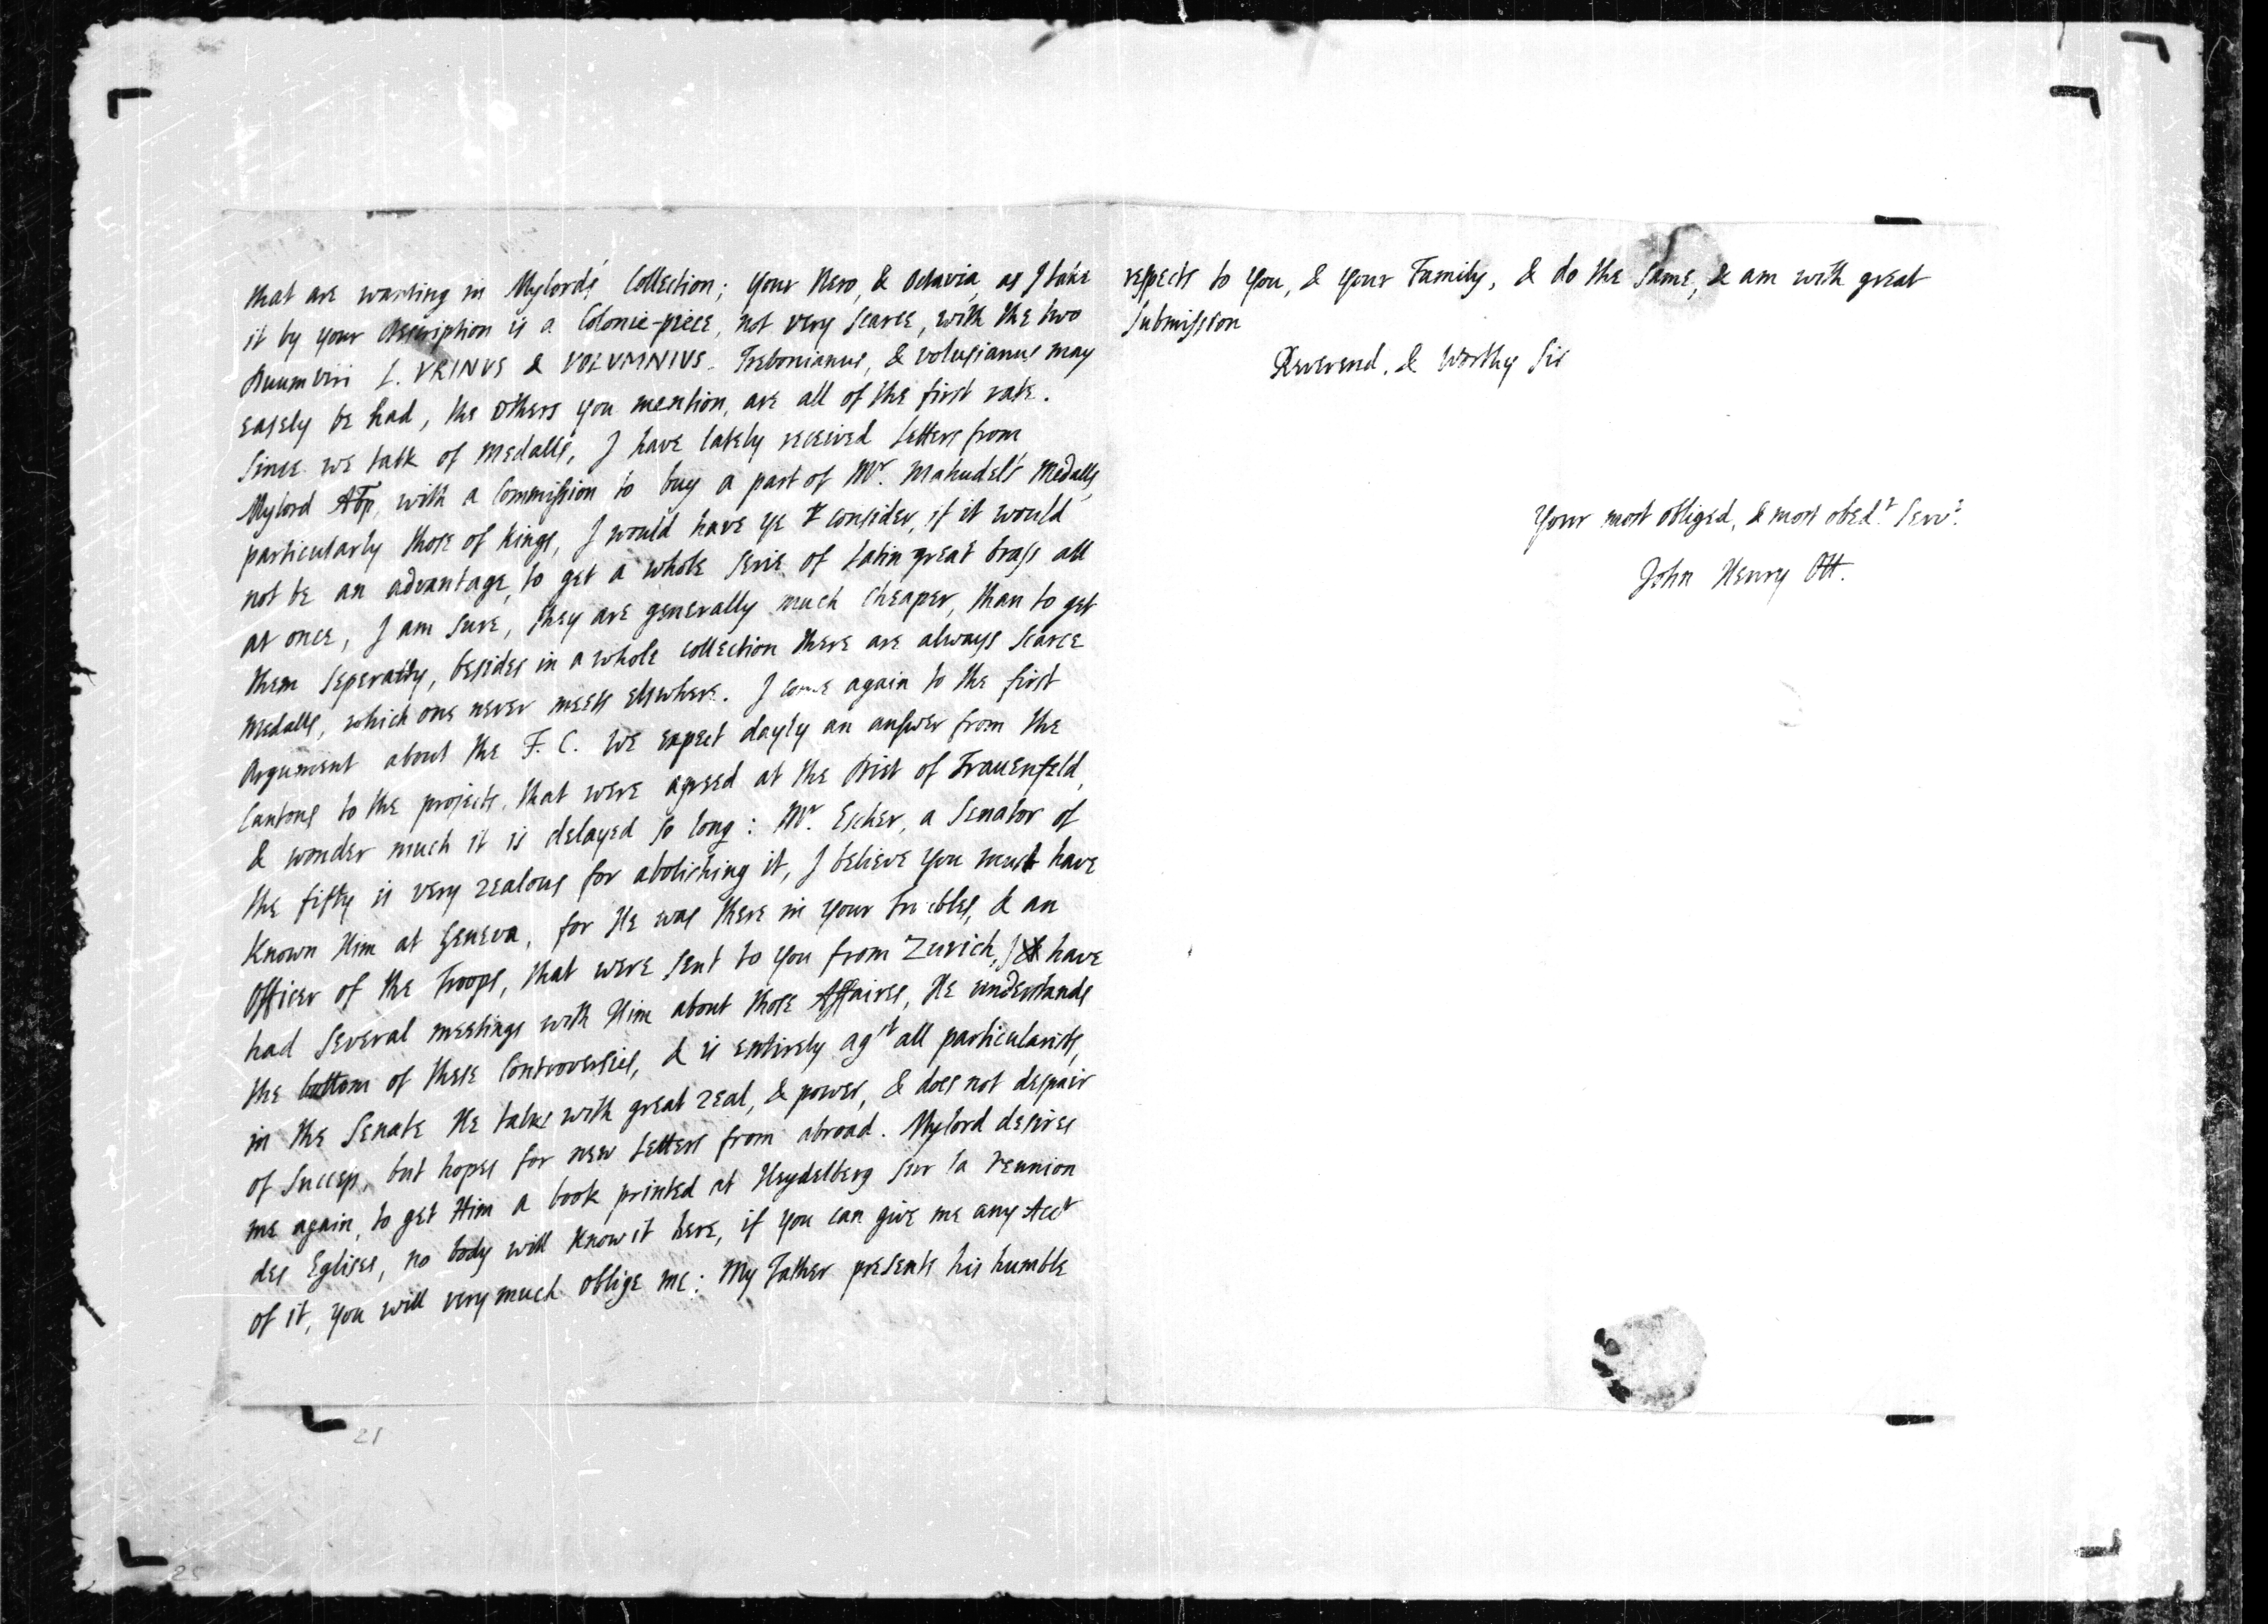 that are wanting in Mylord's Collection; your Nero, & Octavia, as I take
it by your description is a Colonie-piece, not very scarce, with the two
Duumviri L. VRINVS & VOLVMNIVS. Trebonianus, & Volusianus may
easely be had, the others you mention, are all of the first rate.
Since we talk of medalls, I have lately received Letters from
Mylord ABp, with a Commission to buy a part of Mr. Mahudel's Medalls,
particularly those of Kings, I would have ye consider, if it would
not be an advantage, to get a whole serie of Latin great brass all
at once, I am sure, they are generally much cheaper, than to get
them seperatly, besides in a whole collection there are always scarce
Medalls, which one never meets elswhere. I come again to the first
Argument about the F. C. We expect dayly an answer from the
Cantons to the projects, that were agreed at the Diet of Frauenfeld,
& wonder much it is delayed so long: Mr. Escher, a Senator of
the fifty is very zealous for abolishing it, I believe you must have
Known Him at Geneva, for He was there in your troubles, & an
Officer of the Troops, that were sent to you from Zurich, I have
had several meetings with Him about those Affaires, He understands
the bottom of these Controversies, & is entirely agst all particularists,
in the Senate He talks with great zeal, & power, & does not despair
of Success, but hopes for new Letters from abroad. Mylord desires
me again, to get Him a book printed at Heydelberg sur la reunion
des Eglises, no body will know it here, if you can give me any Acct
of it, you will very much oblige me: My Father presents his humble
21
25
respects to You, & your Family, & do the same, & am with great
submission
Reverend, & Worthy Sir
Your most obliged, & most obed.t Serv.t
John Henry Ott.